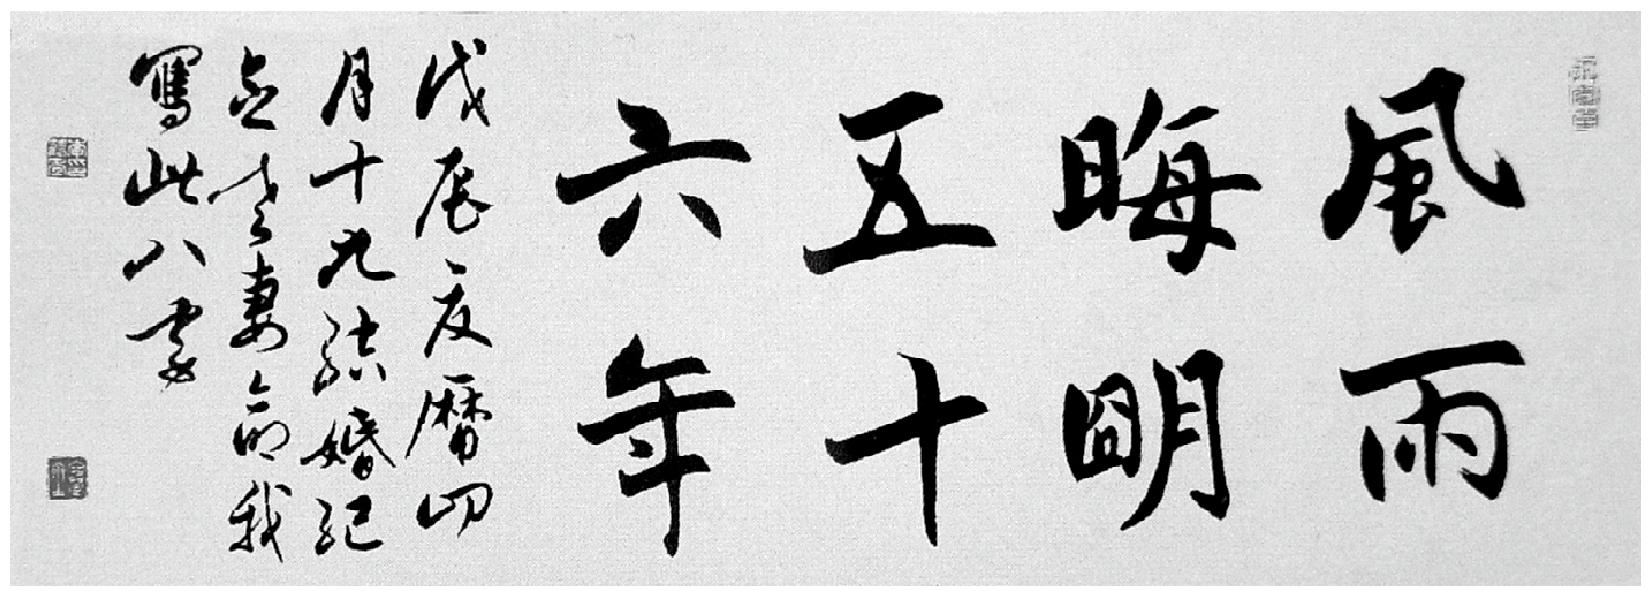 風雨
晦朙
五十
六年
戊辰夏曆四
月十九結婚紀
念老妻命我
寫此八字